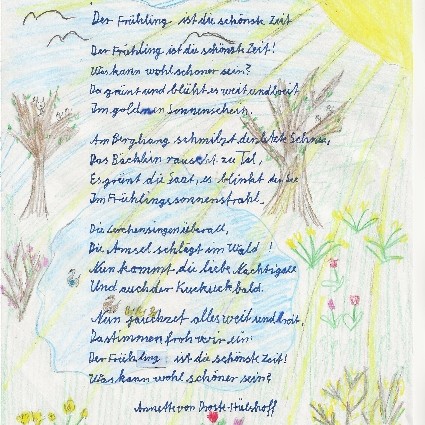 Der Frühling ist die schönste Zeit
Der Frühling ist die schönste Zeit!
Was kann wohl schöner sein?
Da grünt und blüht es weit und breit
Im goldnen Sonnenschein.
Am Berghang schmilzt der letzte Schnee,
Das Bächlein rauscht zu Tal,
Es grünt die Saat, es blinkt der See
Im Frühlingssonnenstrahl.
Die Lerchen singen überall,
Die Amsel schlägt im Wald!
Nun kommt die liebe Nachtigall
Und auch der Kuckuck bald.
Nun jauchzet alles weit und breit,
Da stimmen froh wir ein:
Der Frühling ist die schönste Zeit!
Was kann wohl schöner sein?
Annette von Droste-Hülshoff